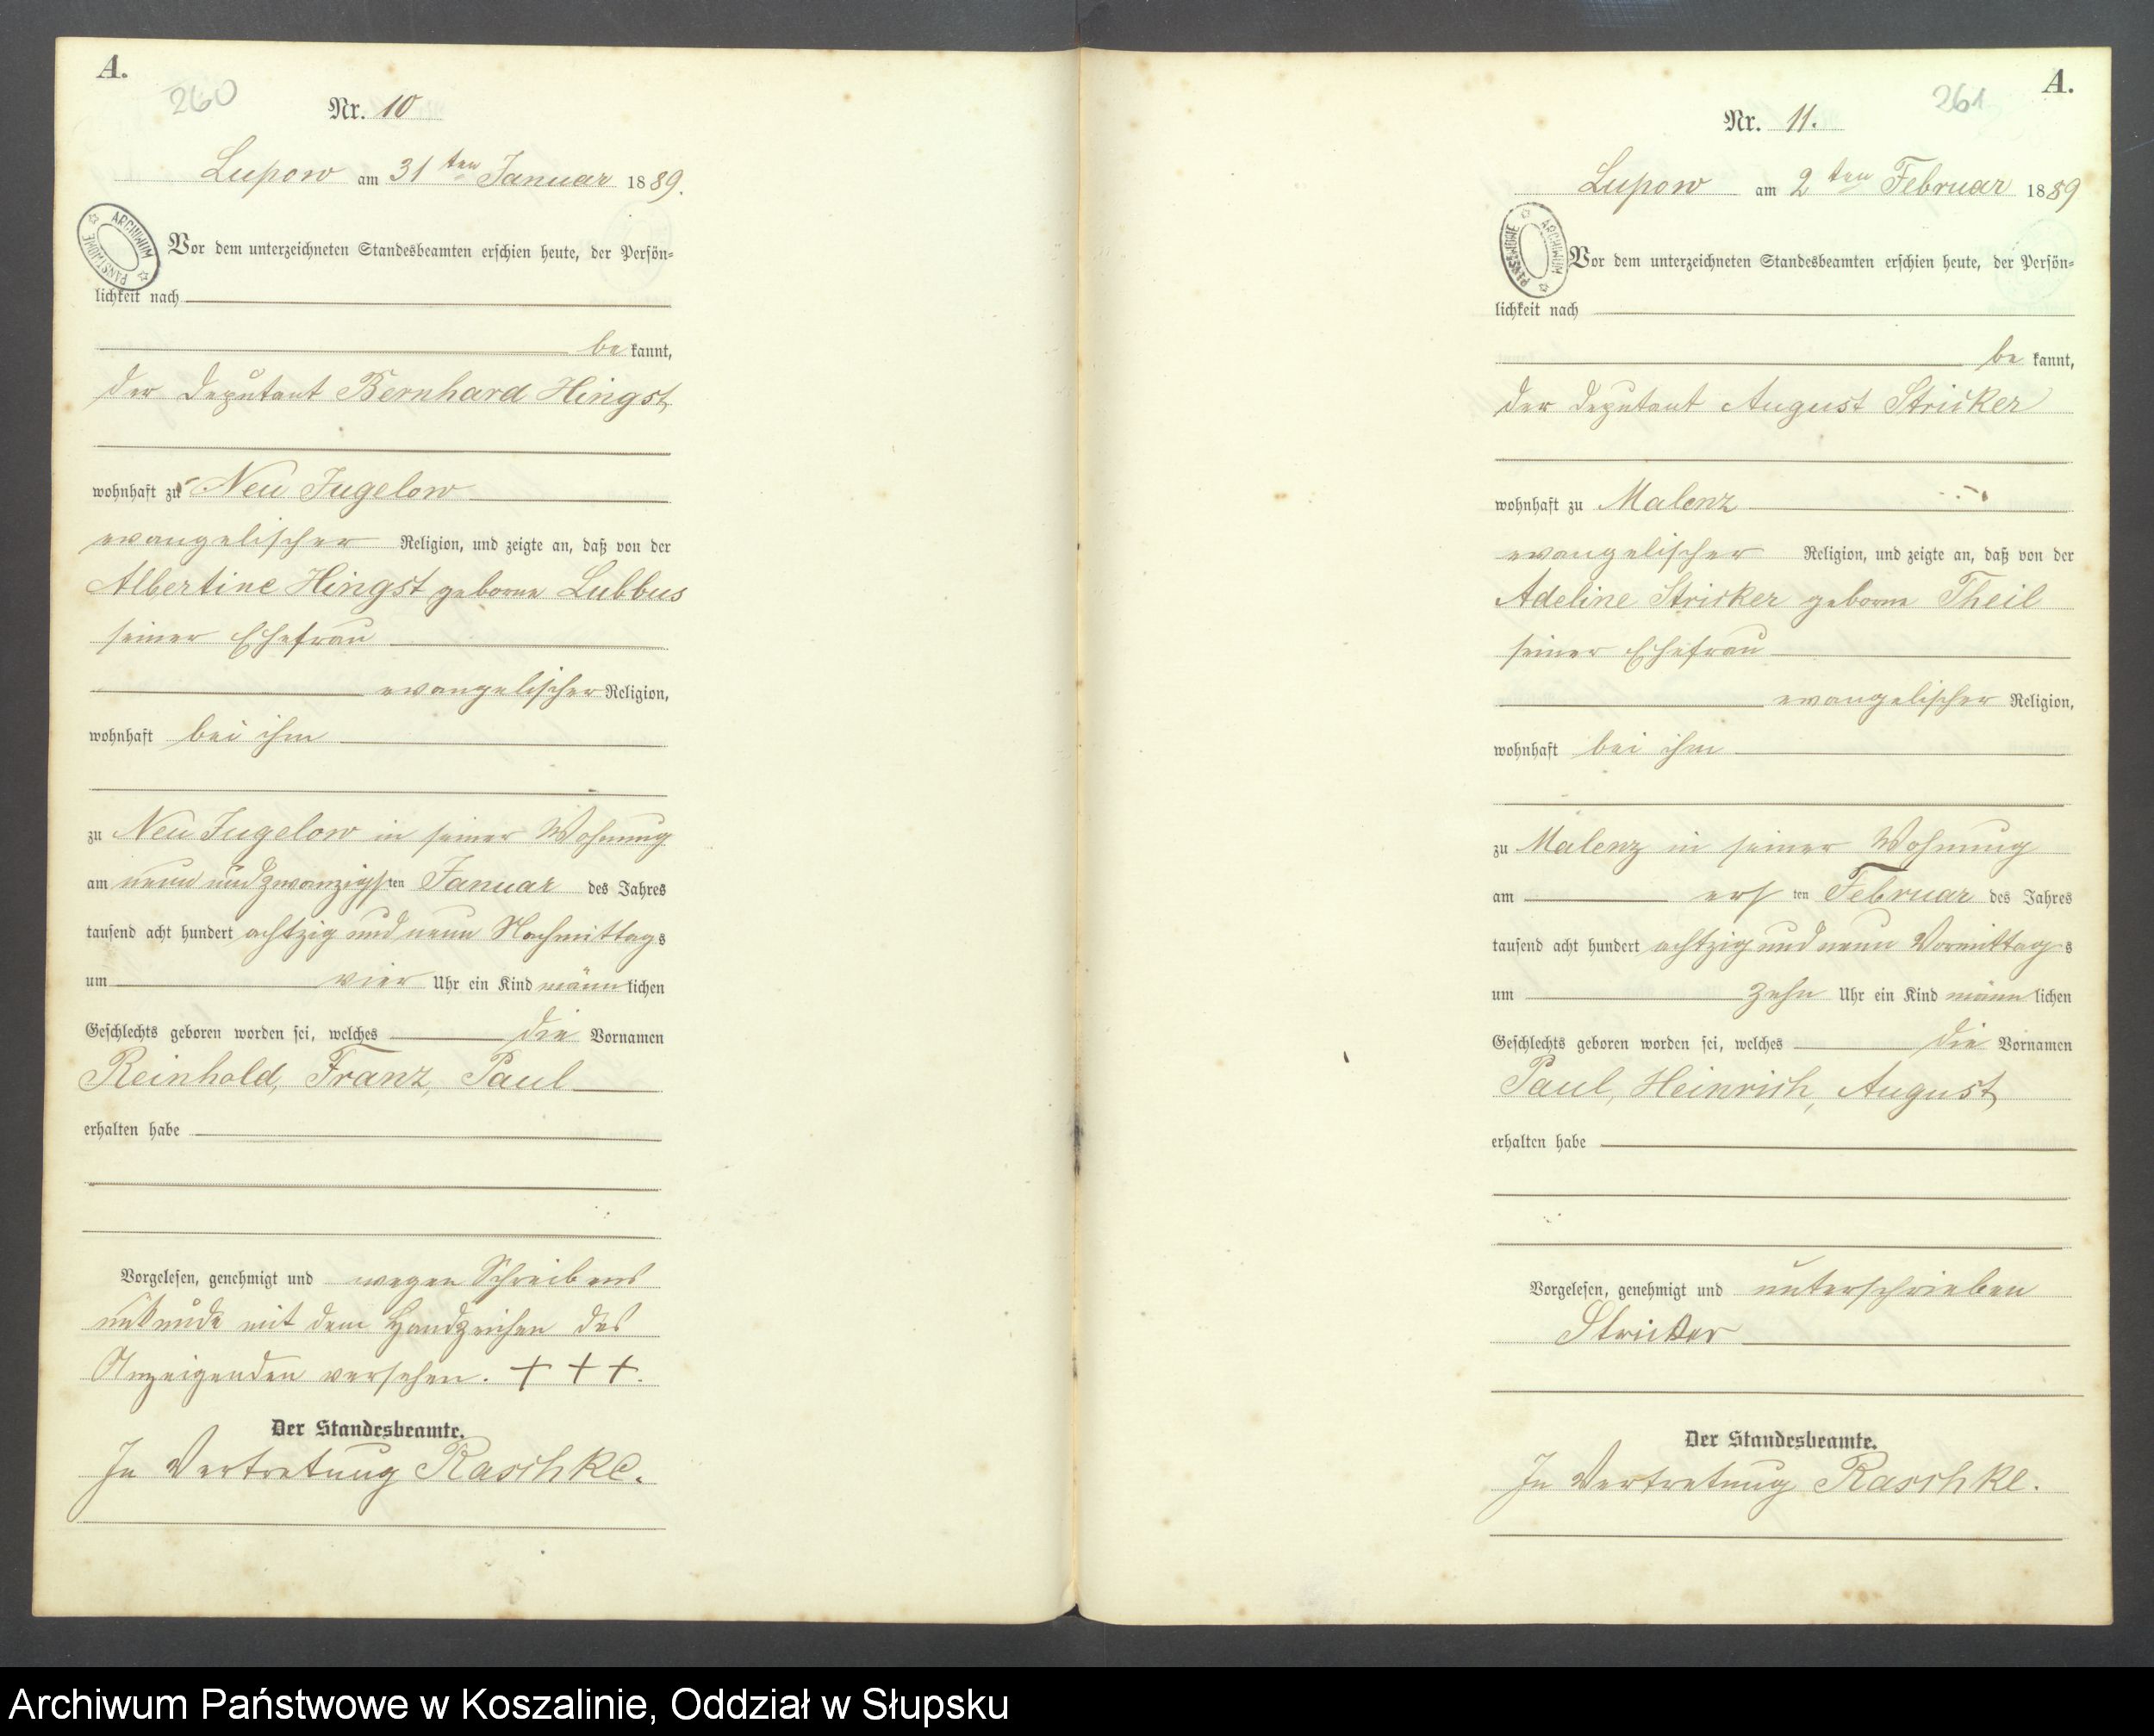 A.
260
Nr. 10
Lupow am 31ten Januar 1889.
ARCHIWUM PAŃSTWOWE
Vor dem unterzeichneten Standesbeamten erschien heute, der Persön-
lichkeit nach
be kannt,
der Deputant Bernhard Hingst,
wohnhaft zu Neu Jugelow
evangelischer Religion, und zeigte an, daß von der
Albertine Hingst geborne Lubbus
seiner Ehefrau
evangelischer Religion,
wohnhaft bei ihm
zu Neu Jugelow in seiner Wohnung
am neun und zwanzigsten Januar des Jahres
tausend acht hundert achtzig und neun Nachmittags
um vier Uhr ein Kind männlichen
Geschlechts geboren worden sei, welches die Vornamen
Reinhold, Franz, Paul
erhalten habe
Vorgelesen, genehmigt und wegen Schreibens
unkunde mit dem Handzeichen des
Anzeigenden versehen. + + +.
Der Standesbeamte.
In Vertretung Raschke.
A.
261
Nr. 11.
Lupow am 2ten Februar 1889
ARCHIWUM PAŃSTWOWE
Vor dem unterzeichneten Standesbeamten erschien heute, der Persön-
lichkeit nach
be kannt,
der Deputant August Stricker
wohnhaft zu Malenz
evangelischer Religion, und zeigte an, daß von der
Adeline Stricker geborne Theil
seiner Ehefrau
evangelischer Religion,
wohnhaft bei ihm
zu Malenz in seiner Wohnung
am ersten Februar des Jahres
tausend acht hundert achtzig und neun Vormittags
um zehn Uhr ein Kind männlichen
Geschlechts geboren worden sei, welches die Vornamen
Paul, Heinrich, August
erhalten habe
Vorgelesen, genehmigt und unterschrieben
Stricker
Der Standesbeamte.
In Vertretung Raschke.
Archiwum Państwowe w Koszalinie, Oddział w Słupsku